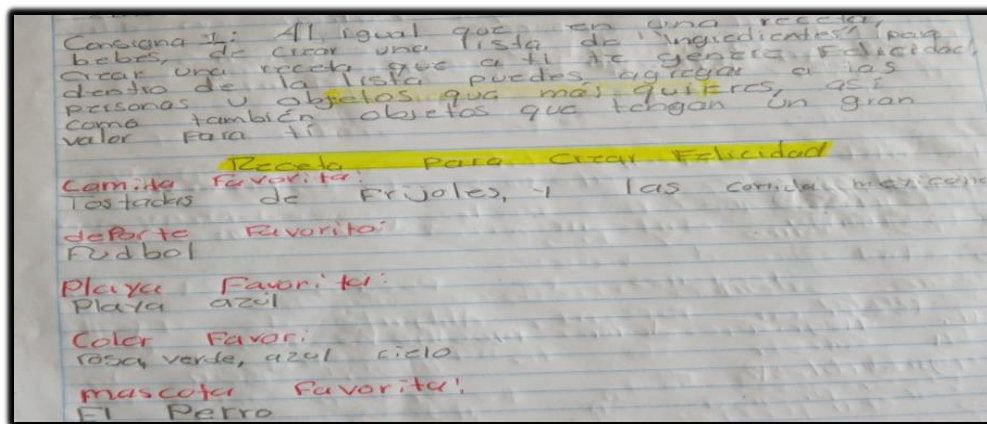 Consigna 1: Al igual que en una receta,
bebes, de crear una lista de "ingredientes" para
crear una receta que a ti te genera Felicidad,
dentro de la lista puedes agregar a las
personas u objetos que mas quieres, así
como también objetos que tengan un gran
valor Para ti
Receta Para Crear Felicidad
Camida Favorita:
Tostadas de Frijoles, y las comida mexicana
dePorte Favorito:
Fudbol
Playa Favorita:
Playa azúl
Color Favori:
rosa, verde, azul cielo
mascota Favorita:
El Perro